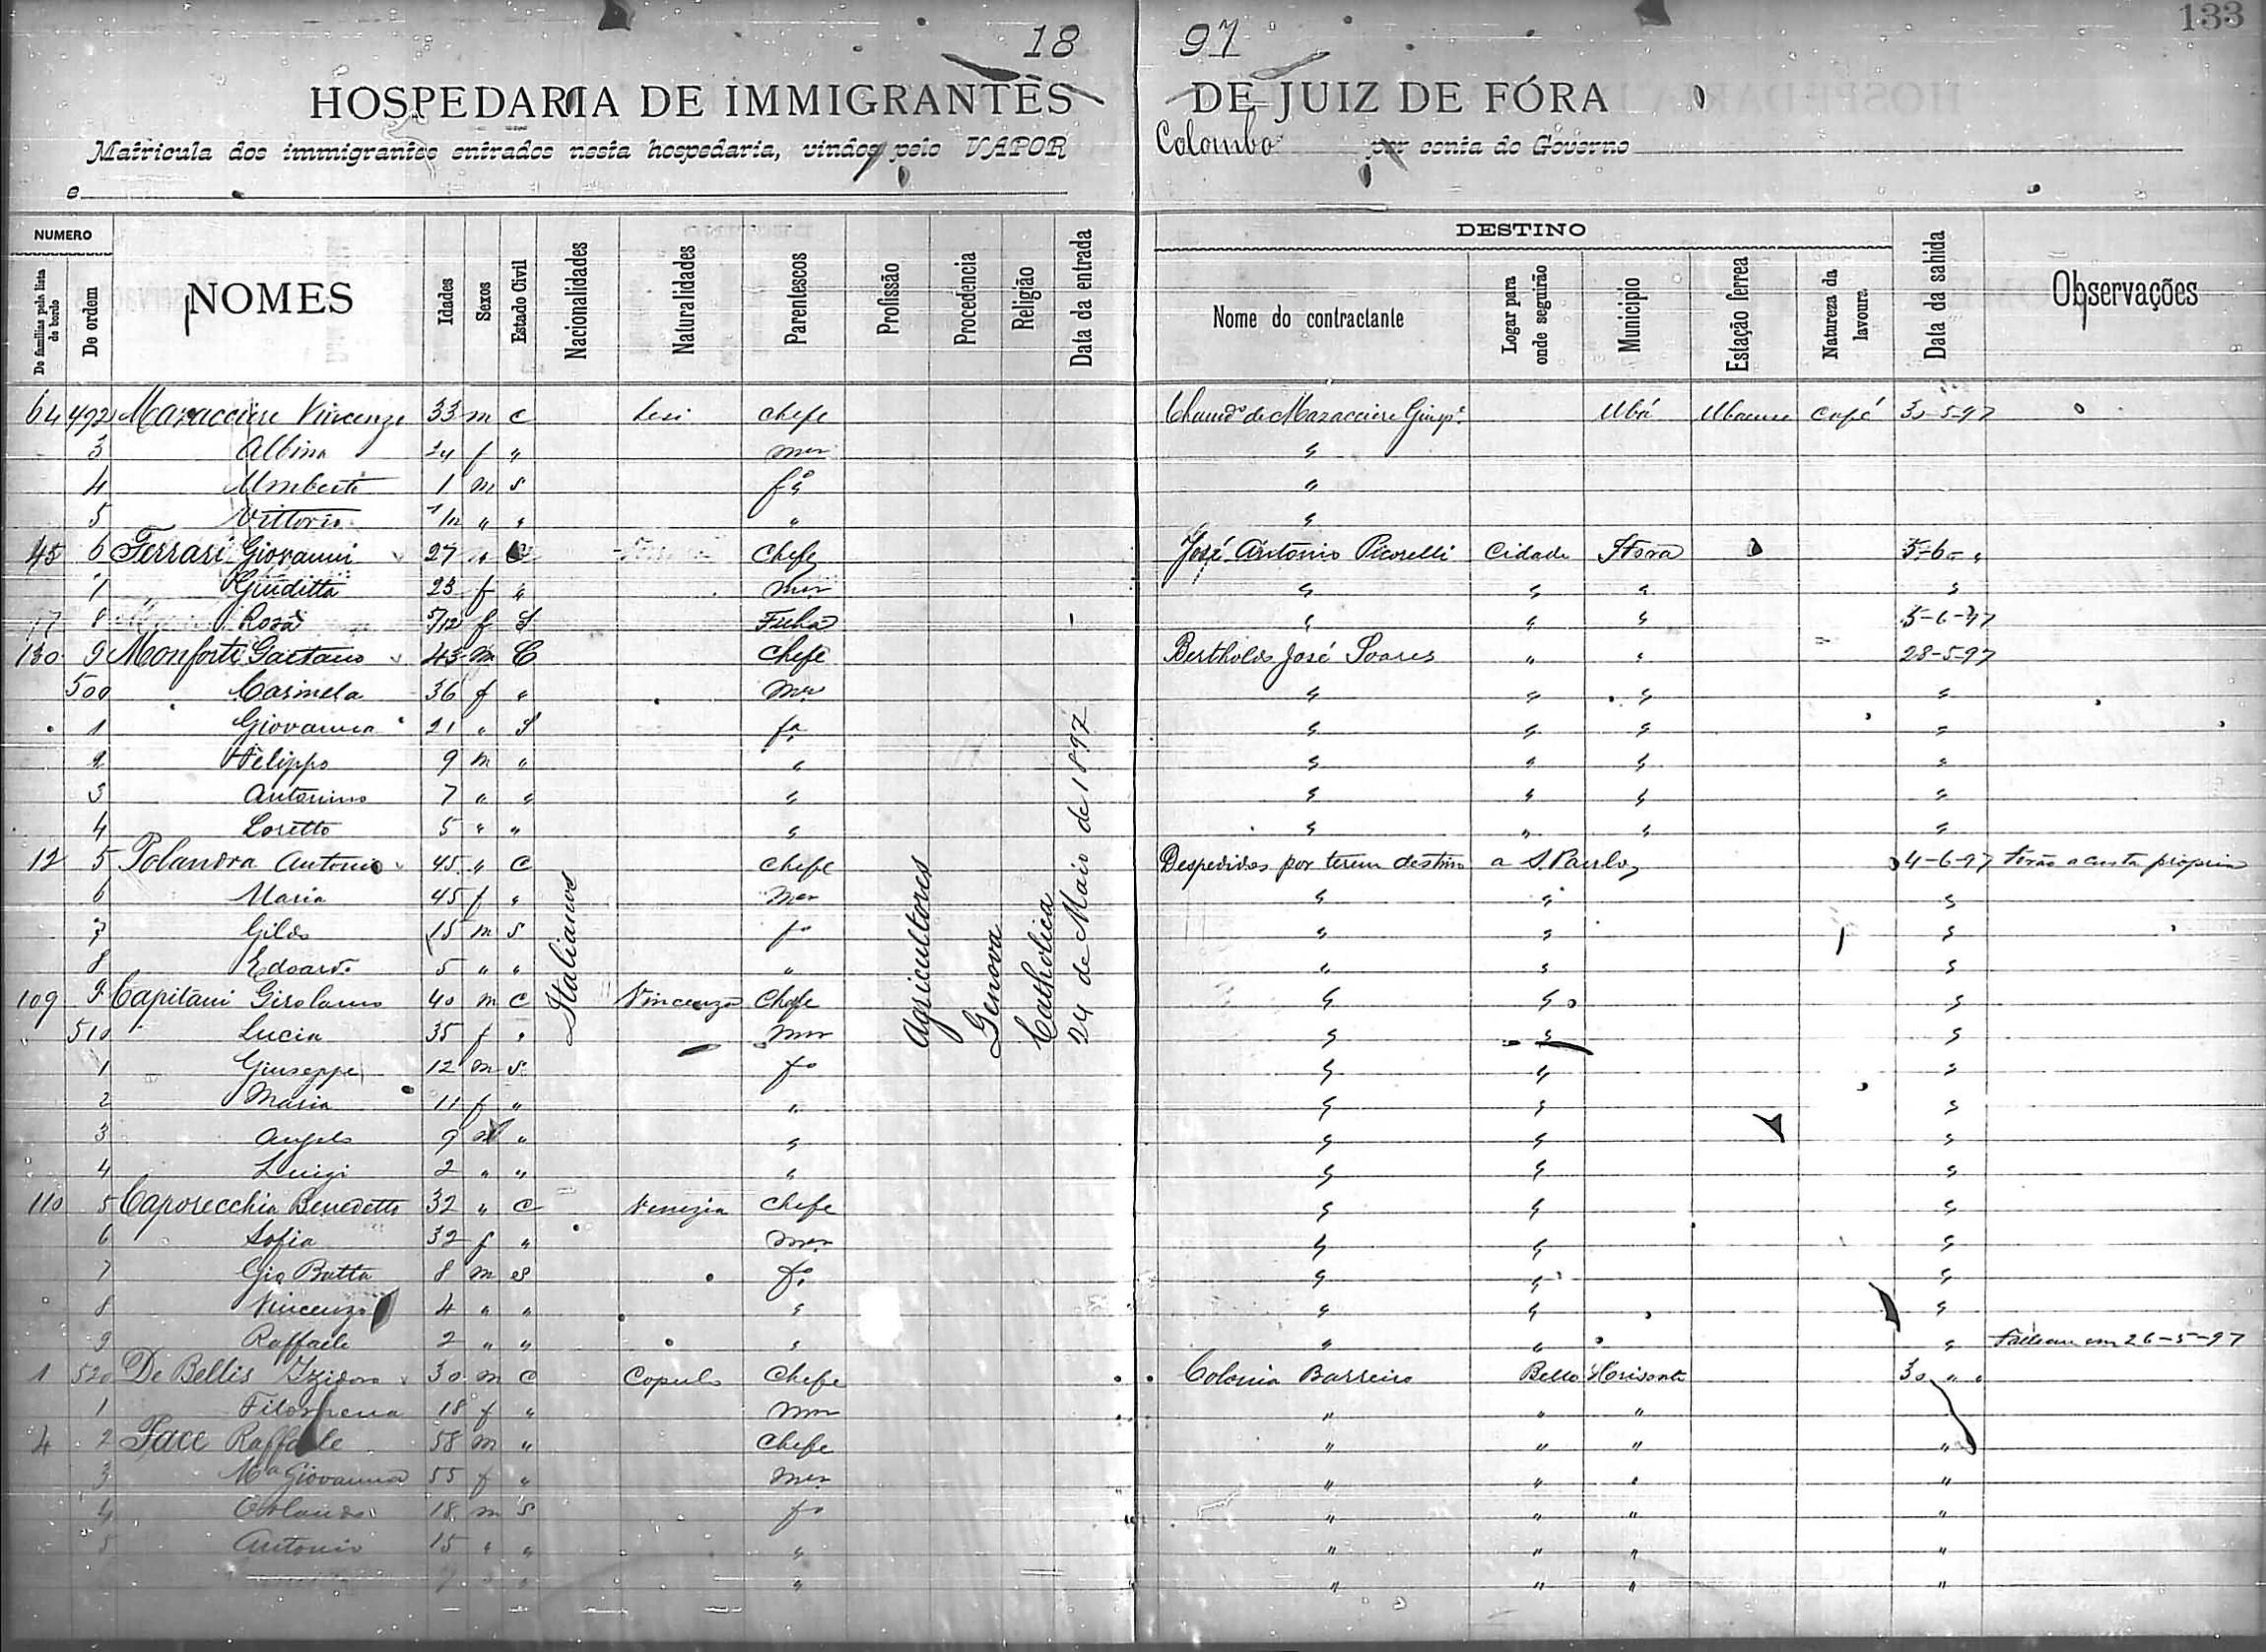 133
18 97
HOSPEDARIA DE IMMIGRANTES DE JUIZ DE FÓRA
Matricula dos immigrantes entrados nesta hospedaria, vindos pelo VAPOR Colombo por conta do Governo
e
NUMERO DESTINO
De familias pela lista de bordo De ordem NOMES Idades Sexos Estado Civil Nacionalidades Naturalidades Parentescos Profissão Procedencia Religião Data da entrada Nome do contractante Logar para onde seguirão Municipio Estação ferrea Natureza da lavoura Data da sahida Observações
64 492 Mazacciere Vincenzo 33 m C Chefe Chamdo de Mazacciere Giuspe Ubá Ubaense Café 30-5-97
3 Albina 24 f " mer "
4 Umberto 1 m s fo "
5 Vittorio 1/12 " " " "
45 6 Ferrari Giovanni 27 " C Chefe José Antonio Picorelli Cidade JFora 5-6- "
7 Giuditta 23 f " mer " " " "
8 Rosa 5/12 f S Filha " " " 5-6-97
130 9 Monforte Gaetano 43 m C Chefe Bertholdo José Soares " " 28-5-97
500 Carmela 36 f " mer " " " "
1 Giovanna 21 " S fa " " " "
2 Filippo 9 m " " " " " "
3 Antonino 7 " " " " " " "
4 Loretto 5 " " " " " " "
12 5 Polandra Antonio 45 " C Chefe Despedidos por terem destino a S. Paulo 4-6-97 propria
6 Maria 45 f " mer " " "
7 Gildo 15 m s fo " " "
8 Edoardo 5 " " " " " "
109 9 Capitani Girolamo 40 m C Vincenza Chefe " " "
510 Lucia 35 f " mer " " "
1 Giuseppe 12 m s fo " " "
2 Maria 11 f " " " " "
3 Angelo 9 m " " " " "
4 Luigi 2 " " " " " "
110 5 Caporecchia Benedetto 32 " C Venezia Chefe " " "
6 Sofia 32 f " mer " " "
7 Gio Batta 8 m s fo " " "
8 Vincenzo 4 " " " " " "
9 Raffaele 2 " " " " " " em 26-5-97
1 520 De Bellis Izidoro 30 m C Chefe Colonia Barreiro Bello Horisonte 30 " "
1 Filomena 18 f " mer " " " "
4 2 Pace Raffaele 58 m " Chefe " " " "
3 Ma Giovanna 55 f " mer " " " "
4 Orlando 18 m s fo " " " "
5 Antonio 15 " " " " " " "
" " " " "
Italianos
Agricultores
Genova
Catholica
24 de Maio de 1897